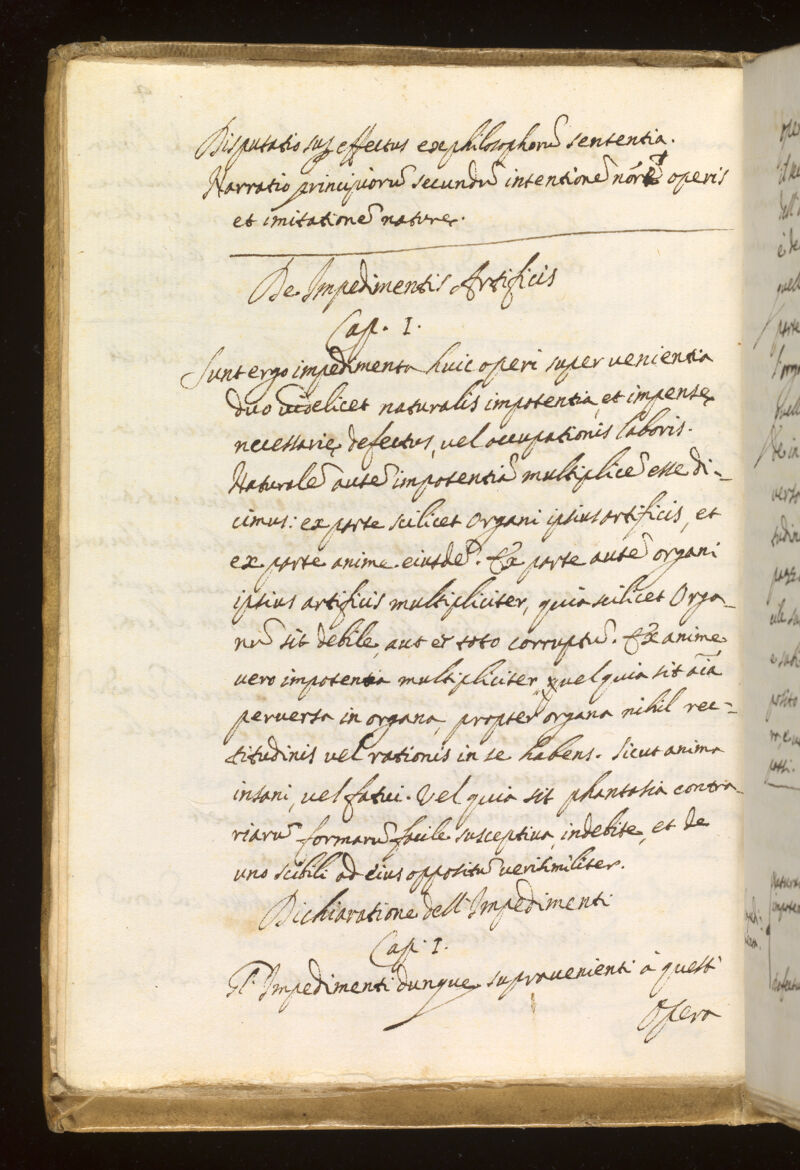 Disputatio sup effectus ex philosophorũ sententia.
Narratio principiorũ secundũ intentionẽ nõrẽ operis
et imitationẽ nature.
De Impedimentis Artificis
Cap. I.
Sunt ergo impedimenta huic operi supervenientia
duo videlicet naturalis impotentia, et impense
necessarie defectus, vel occupationis laboris.
Naturalẽ autẽ impotentiã multiplicẽ esse di-
cimus: ex parte scilicet Organi ipsius artificis, et
ex parte anime eiusdẽ. Ex parte autẽ organi
ipsius artificis multipliciter, quia scilicet Orga-
nũ sit debile, aut ex toto corruptũ. Ex anime
vero impotentia multipliciter, vel quia sit aĩa
perversa in organa, propter organa nihil rec-
titudinis vel rationis in se habens. Sicut anima
insani, vel fatui. Vel quia sit phantasia contra
riarũ formarũ facile susceptiva, indebite, et de
uno scibili ad eius oppositũ verisimiliter.
Dichiaratione dell' Impedimenti
Cap. I.
Gl' Impedimenti dunque sopravenienti à quest'
Opera